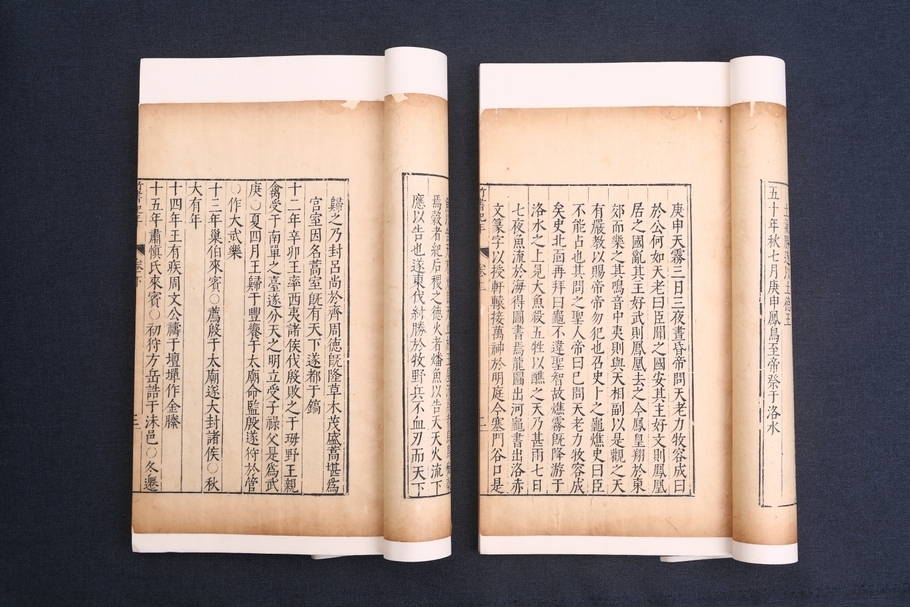 土氣勝遂以土德王
五十年秋七月庚申鳳鳥至帝祭于洛水
庚申天霧三日三夜晝昏帝問天老力牧容成曰
於公何如天老曰臣聞之國安其主好文則鳳凰
居之國亂其主好武則鳳凰去之今鳳皇翔於東
郊而樂之其鳴音中夷則與天相副以是觀之天
有嚴教以賜帝帝勿犯也召史卜之龜燋史曰臣
不能占也其問之聖人帝曰已問天老力牧容成
矣史北面再拜曰龜不違聖智故燋霧旣降游于
洛水之上見大魚殺五牲以醮之天乃甚雨七日
七夜魚流於海得圖書焉龍圖出河龜書出洛赤
文篆字以授軒轅接萬神於明庭今塞門谷口是
焉穀者紀后稷之德火者燔魚以告天天火流下
應以告也遂東伐紂勝於牧野兵不血刃而天下
歸之乃封呂尚於齊周德旣隆草木茂盛蒿堪爲
宮室因名蒿室旣有天下遂都于鎬
十二年辛卯王率西夷諸侯伐殷敗之于坶野王親
禽受于南單之臺遂分天之明立受子祿父是爲武
庚○夏四月王歸于豐饗于太廟命監殷遂狩於管
○作大武樂
十三年巢伯來賓○薦殷于太廟遂大封諸侯○秋
大有年
十四年王有疾周文公禱于壇墠作金縢
十五年肅愼氏來賓○初狩方岳誥于沬邑○冬遷